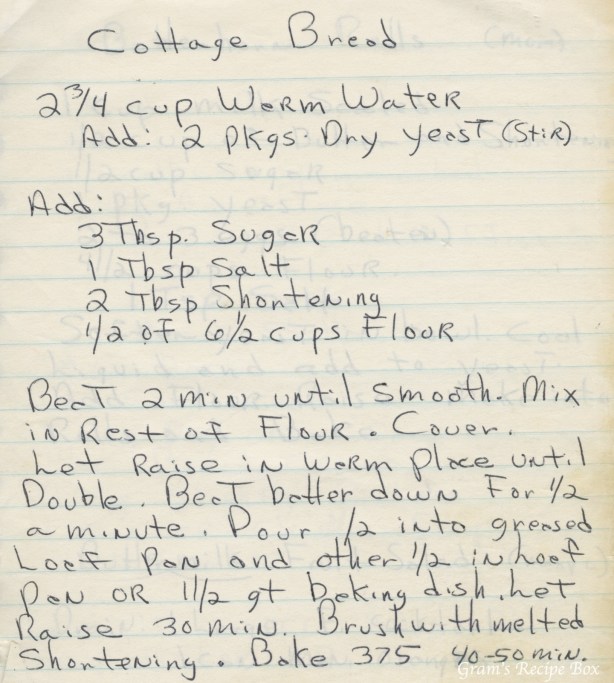 Cottage Bread
2 3/4 cup Warm Water
Add: 2 pkgs Dry yeast (Stir)
Add:
3 Tbsp. Sugar
1 Tbsp Salt
2 Tbsp Shortening
1/2 of 6 1/2 cups Flour
Beat 2 min until smooth. Mix
in Rest of Flour. Cover.
Let Raise in warm place until
Double. Beat batter down For 1/2
a minute. Pour 1/2 into greased
Loaf Pan and other 1/2 in Loaf
Pan OR 1 1/2 qt baking dish. Let
Raise 30 min. Brush with melted
Shortening. Bake 375 40-50 min.
Gram's Recipe Box